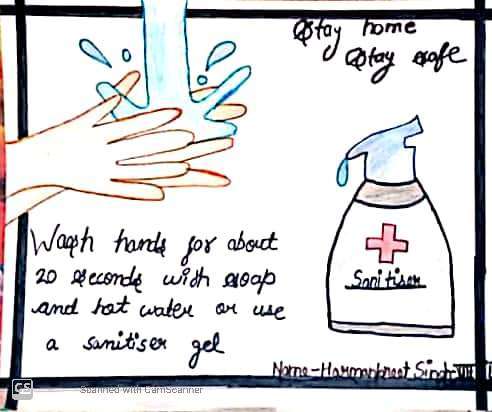 Stay home
Stay safe
Wash hands for about
20 seconds with soap
and hot water or use
a sanitiser gel
Sanitiser
Name-Harmanpreet Singh-VIII
CS Scanned with CamScanner